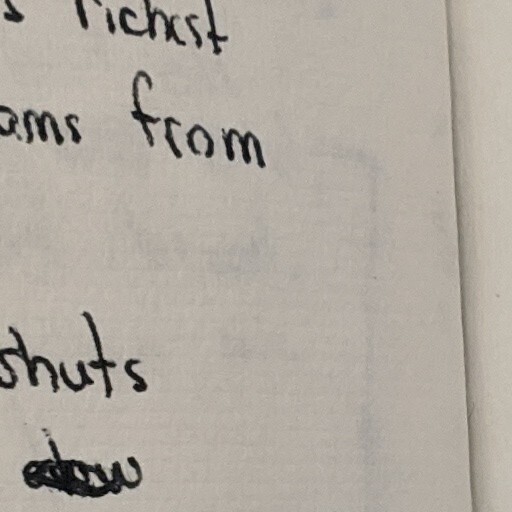 s richest
ams from
shuts